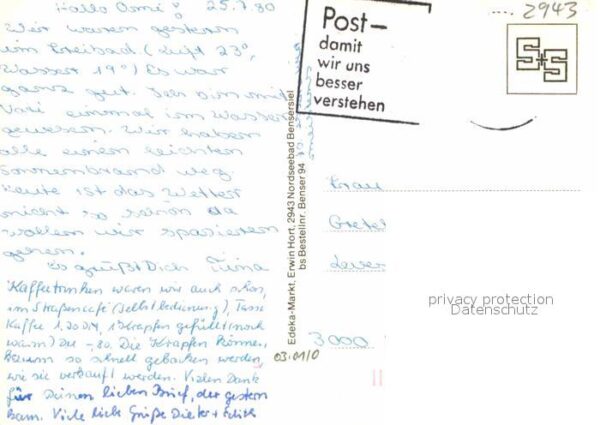 Hallo Omi! 25.7.80
Wir waren gestern
im Freibad. (Luft 23°,
Wasser 19°) Es war
ganz gut. Ich bin mit
Vati einmal im Wasser
gewesen. Wir haben
alle einen leichten
Sonnenbrand weg.
Heute ist das Wetter
nicht so schön da
wollen wir spazieren
gehen.
Es grüßt Dich Tina
Kaffeetrinken waren wir auch schon,
im Straßencafé (Selbstbedienung), Tasse
Kaffee 1,20 DM, 1 Krapfen gefüllt (noch
warm) DM -,80. Die Krapfen können
kaum so schnell gebacken werden,
wie sie verkauft werden. Vielen Dank
für Deinen lieben Brief, der gestern
kam. Viele liebe Grüße Dieter + Edith
Edeka-Markt, Erwin Hort, 2943 Nordseebad Bensersiel
bs Bestellnr. Benser 94
03.01/0
Post—
damit
wir uns
besser
verstehen
2943
S+S
Frau
3000
privacy protection
Datenschutz